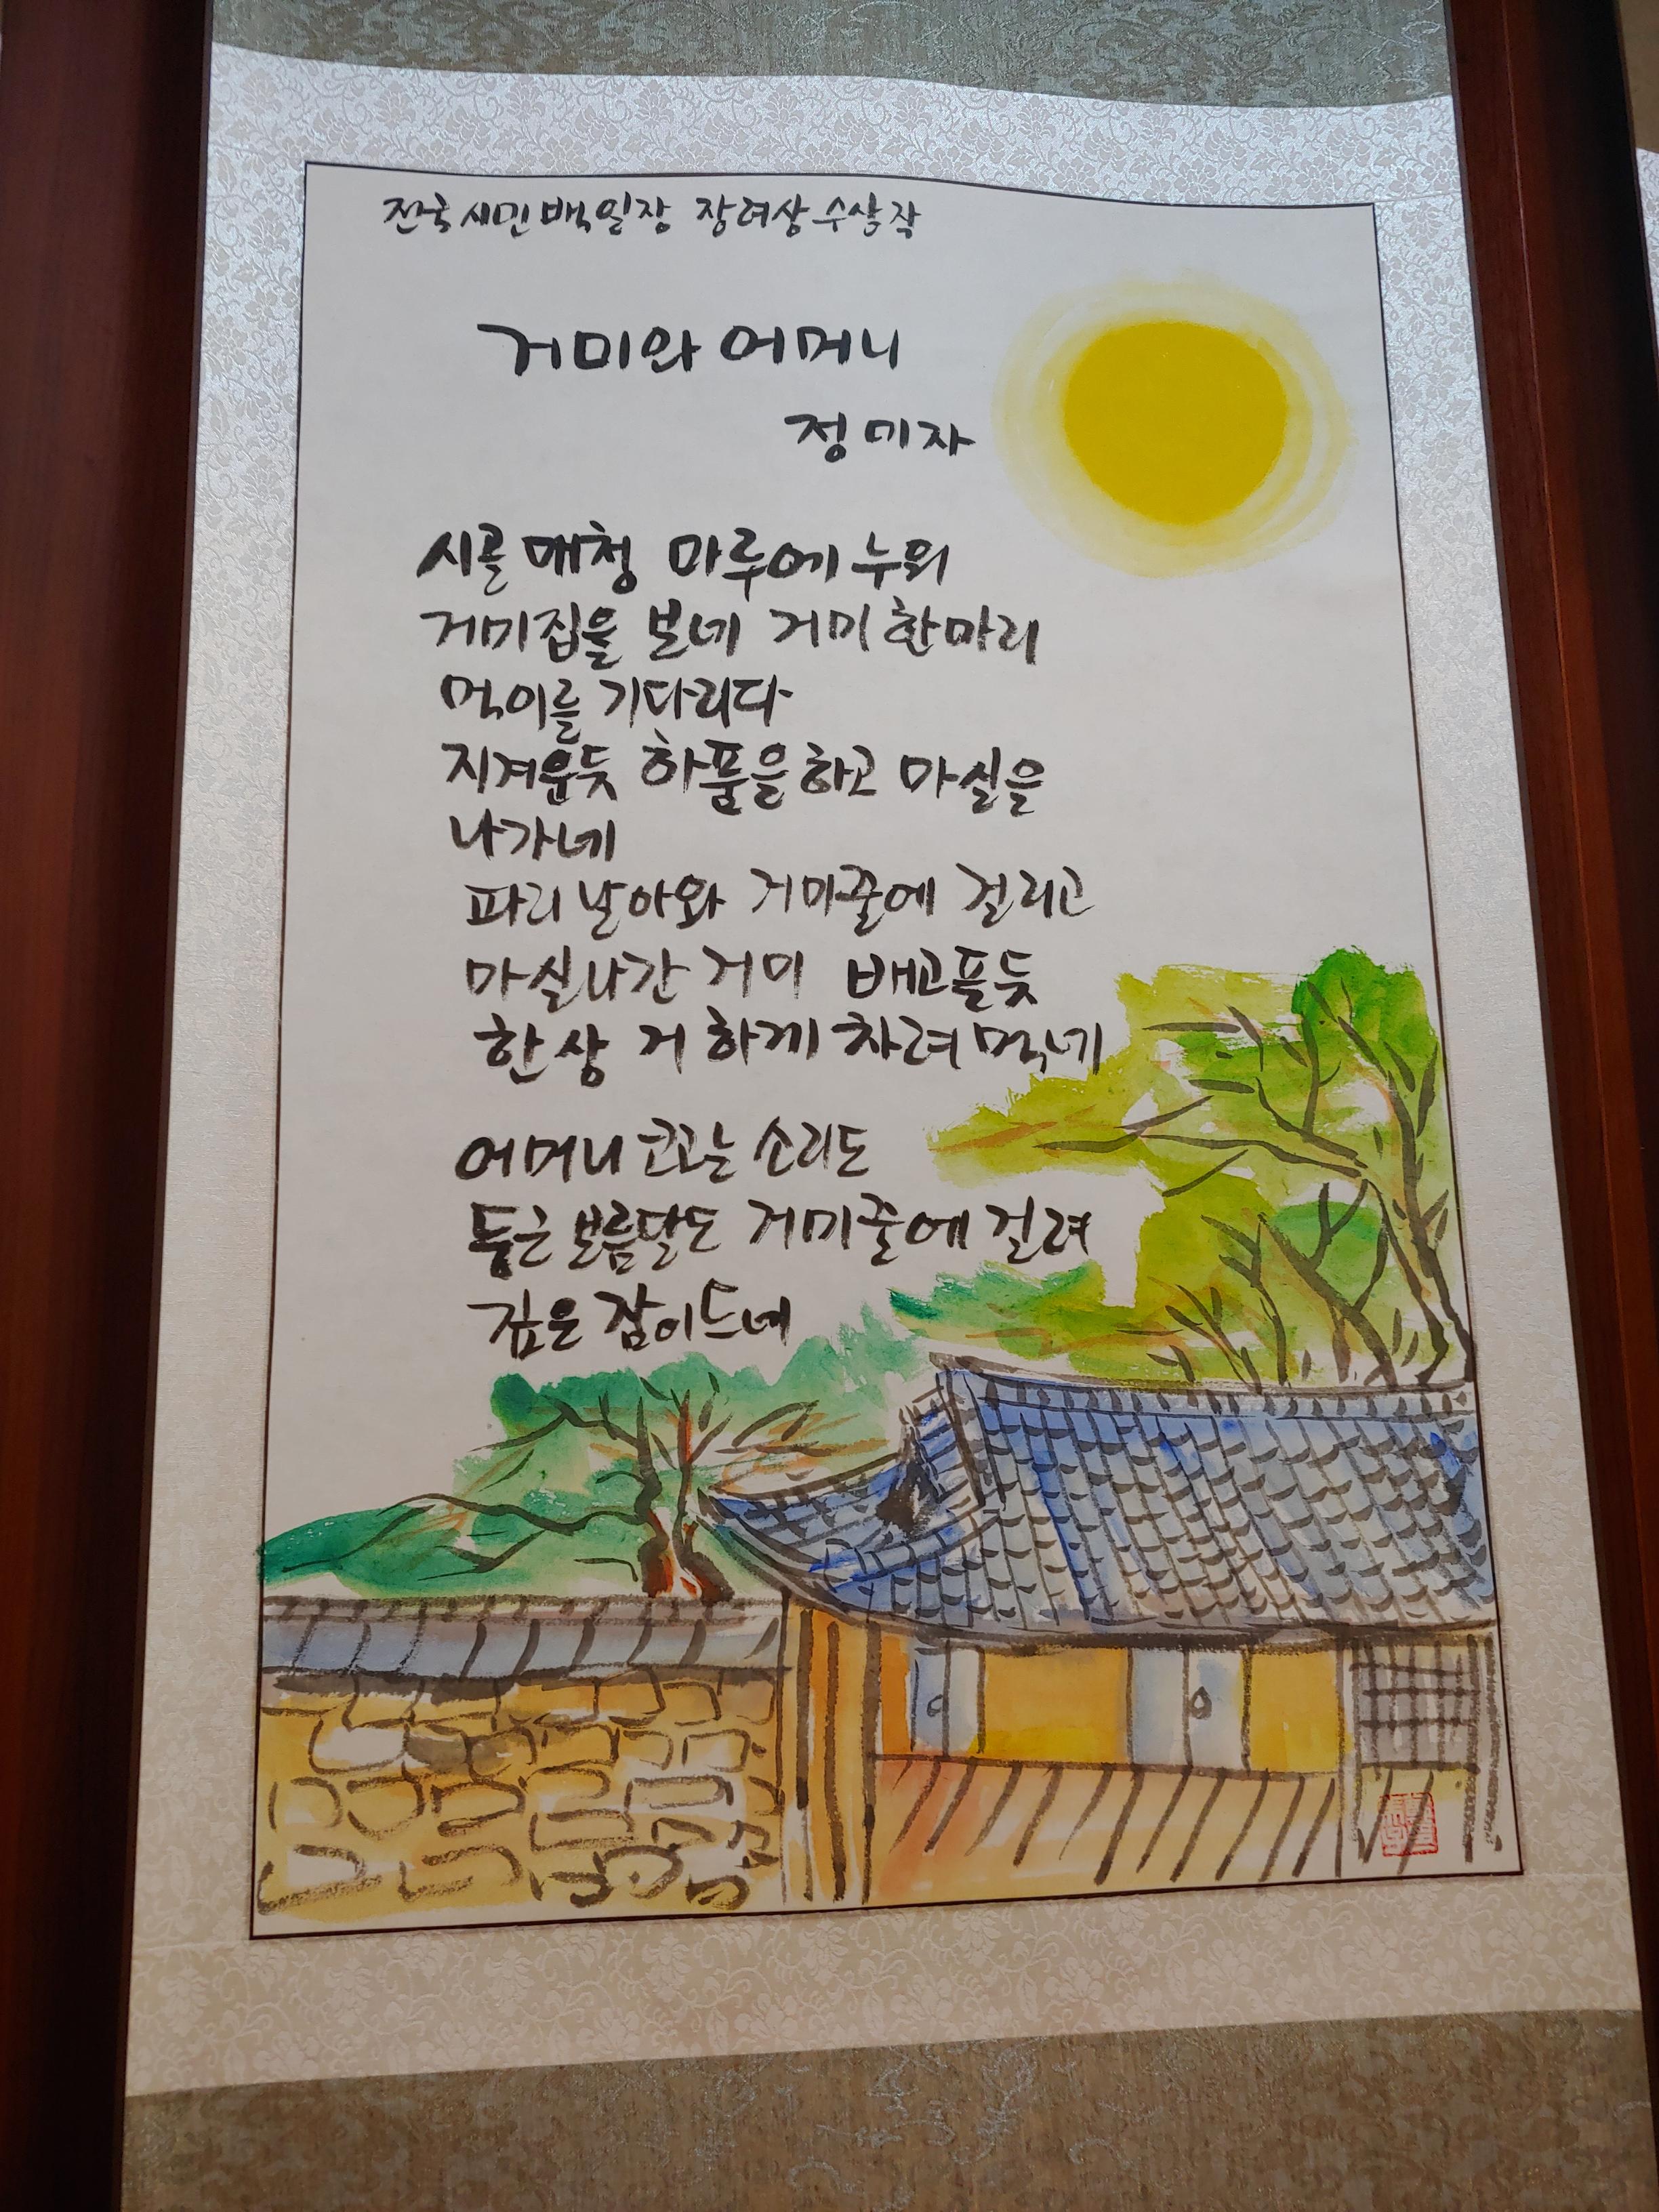 전국시민백일장 장려상수상작
거미와 어머니
정미자
시골 대청 마루에 누워
거미집을 보네 거미한마리
먹이를 기다리다
지겨운듯 하품을 하고 마실을
나가네
파리 날아와 거미줄에 걸리고
마실나간 거미 배고플듯
한상 거하게 차려먹네
어머니 코고는 소리도
둥근 보름달도 거미줄에 걸려
깊은 잠이드네